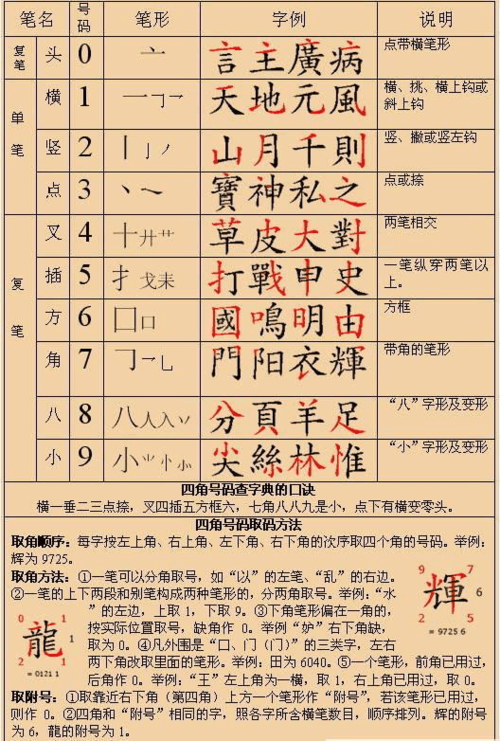 笔名 号码 笔形 字例 说明
复笔 头 0 亠 言主廣病 点带横笔形
单笔 横 1 一㇆㇀ 天地元風 横、挑、横上钩或斜上钩
竖 2 丨亅丿 山月千則 竖、撇或竖左钩
点 3 丶㇏ 寶神私之 点或捺
复笔 叉 4 十廾艹 草皮大對 两笔相交
插 5 扌戈耒 打戰申史 一笔纵穿两笔以上。
方 6 囗口 國鳴明由 方框
角 7 ㇆乛乚 門阳衣輝 带角的笔形
八 8 八人入丷 分頁羊足 “八”字形及变形
小 9 小⺌忄⺗ 尖絲林惟 “小”字形及变形
四角号码查字典的口诀
横一垂二三点捺，叉四插五方框六，七角八八九是小，点下有横变零头。
四角号码取码方法
取角顺序：每字按左上角、右上角、左下角、右下角的次序取四个角的号码。举例：
辉为 9725。
取角方法：①一笔可以分角取号，如“以”的左笔、“乱”的右边。
②一笔的上下两段和别笔构成两种笔形的，分两角取号。举例：“水
”的左边，上取 1，下取 9。③下角笔形偏在一角的，
按实际位置取号，缺角作 0。举例“妒”右下角缺，
取为 0。④凡外围是“口、门（门）”的三类字，左右
两下角改取里面的笔形。举例：田为 6040。⑤一个笔形，前角已用过，
后角作 0。举例：“王”左上角为一横，取 1，右上角已用过，取 0。
取附号：①取靠近右下角（第四角）上方一个笔形作“附号”，若该笔形已用过，
则作 0。②四角和“附号”相同的字，照各字所含横笔数目，顺序排列。辉的附号
为 6，龍的附号为 1。
9 7
輝 6
2 5
= 9725 6
0 1
龍 1
2 1
= 0121 1